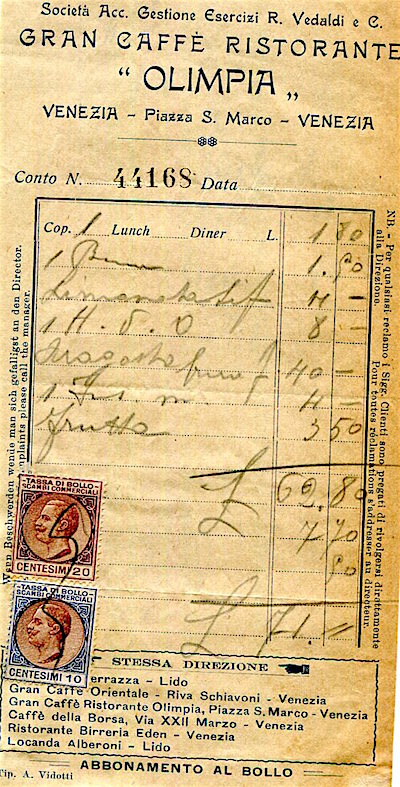 Società Acc. Gestione Esercizi R. Vedaldi e C.
GRAN CAFFÈ RISTORANTE
“ OLIMPIA „
VENEZIA - Piazza S. Marco - VENEZIA
Conto N. 44168 Data
Cop. 1 Lunch Diner L. 1 80
1 1.50
4 -
1 H. d. O 8 -
40 -
1 4 =
frutta 3 50
£ 62.80
7 70
50
£ 71. =
NB. - Per qualsiasi reclamo i Sigg. Clienti sono pregati di rivolgersi direttamente
alla Direzione. Pour toutes réclamations s'addresser au directeur.
Wenn Beschwerden wenue man sich gefalligst an den Director.
plaints please call the manager.
TASSA DI BOLLO
SCAMBI COMMERCIALI
CENTESIMI 20
TASSA DI BOLLO
SCAMBI COMMERCIALI
CENTESIMI 10
STESSA DIREZIONE
errazza - Lido
Gran Caffè Orientale - Riva Schiavoni - Venezia
Gran Caffè Ristorante Olimpia, Piazza S. Marco - Venezia
Caffè della Borsa, Via XXII Marzo - Venezia
Ristorante Birreria Eden - Venezia
Locanda Alberoni - Lido
ABBONAMENTO AL BOLLO
Tip. A. Vidotti